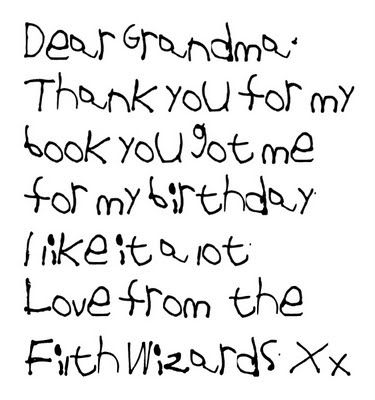 Dear Grandma.
Thank you for my
book you got me
for my birthday.
I like it a lot.
Love from the
Firth Wizards. Xx